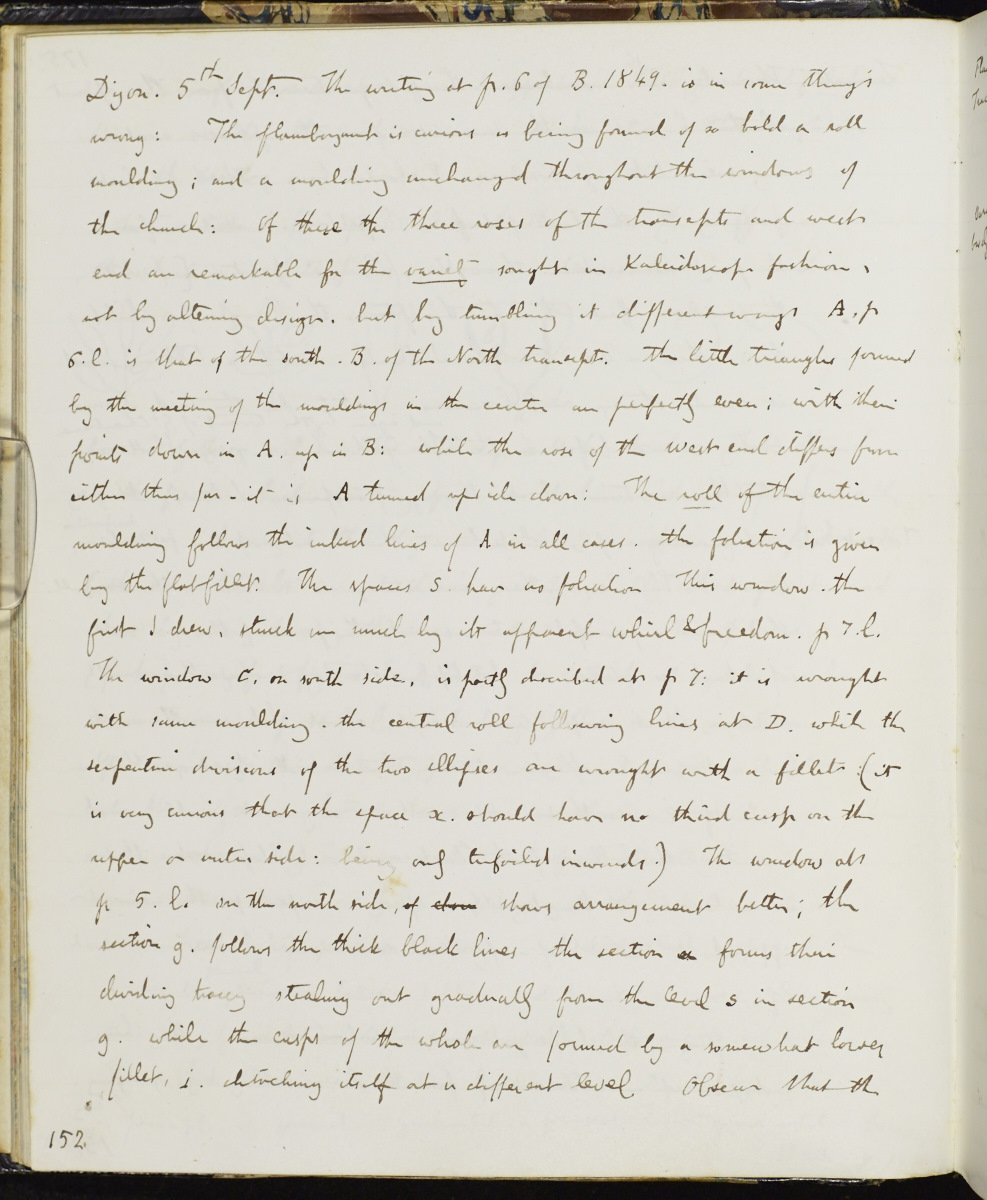 Dijon. 5th Sept. The writing at p. 6 of B. 1849. is in some things
wrong: The flamboyant is curious as being formed of so bold a roll
moulding; and a moulding unchanged throughout the windows of
the church: Of these the three roses of the transepts and west
end are remarkable for the variety sought in Kaleidoscope fashion,
not by altering design. but by tumbling it different ways A. p
6. l. is that of the south. B. of the North transept. the little triangles formed
by the meeting of the mouldings in the center are perfectly even; with their
points down in A. up in B: while the rose of the west end differs from
either thus far - it is A turned upside down: The roll of the entire
moulding follows the inked lines of A in all cases. the foliation is given
by the flat fillet. The spaces S. have no foliation This window. the
first I drew, struck me much by its apparent whirl & freedom. p 7. l.
The window C, on south side, is partly described at p 7: it is wrought
with same moulding. the central roll following lines at D. while the
serpentine divisions of the two ellipses are wrought with a fillet: (it
is very curious that the space x. should have no third cusp on the
upper or outer side: being only trefoiled inwards.) The window at
p 5. l. on the north side, of shows arrangement better; the
section g. follows the thick black lines the section forms their
dividing tracery stealing out gradually from the level s in section
g. while the cusps of the whole are formed by a somewhat lower
fillet, i. detaching itself at a different level Observe that the
152.